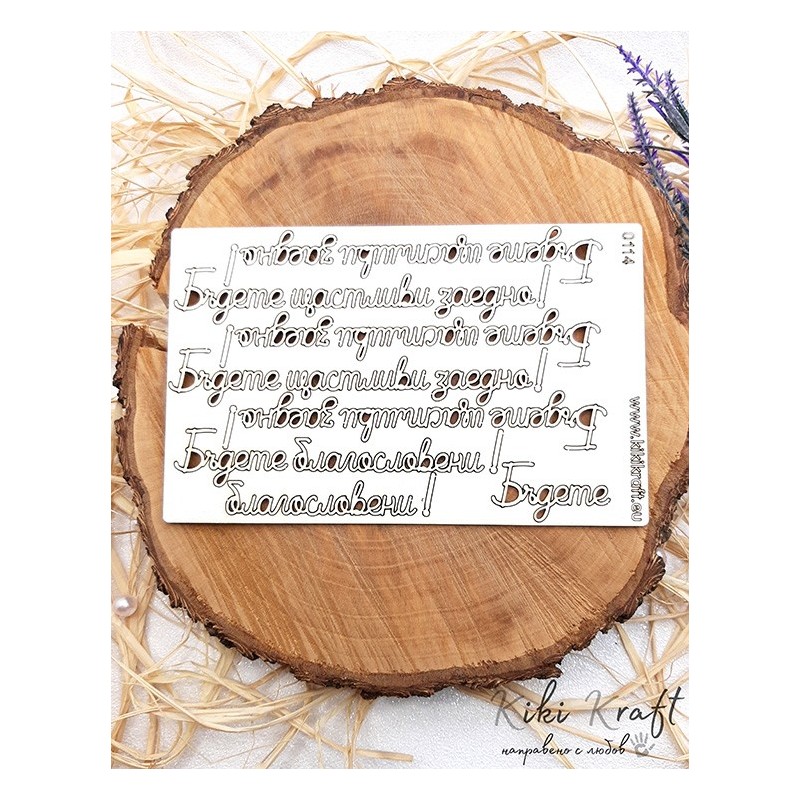 0114
Бъдете щастливи заедно!
Бъдете щастливи заедно!
Бъдете щастливи заедно!
Бъдете щастливи заедно!
Бъдете щастливи заедно!
Бъдете благословени!
благословени! Бъдете
www.kikikraft.eu
Kiki Kraft
направено с любов